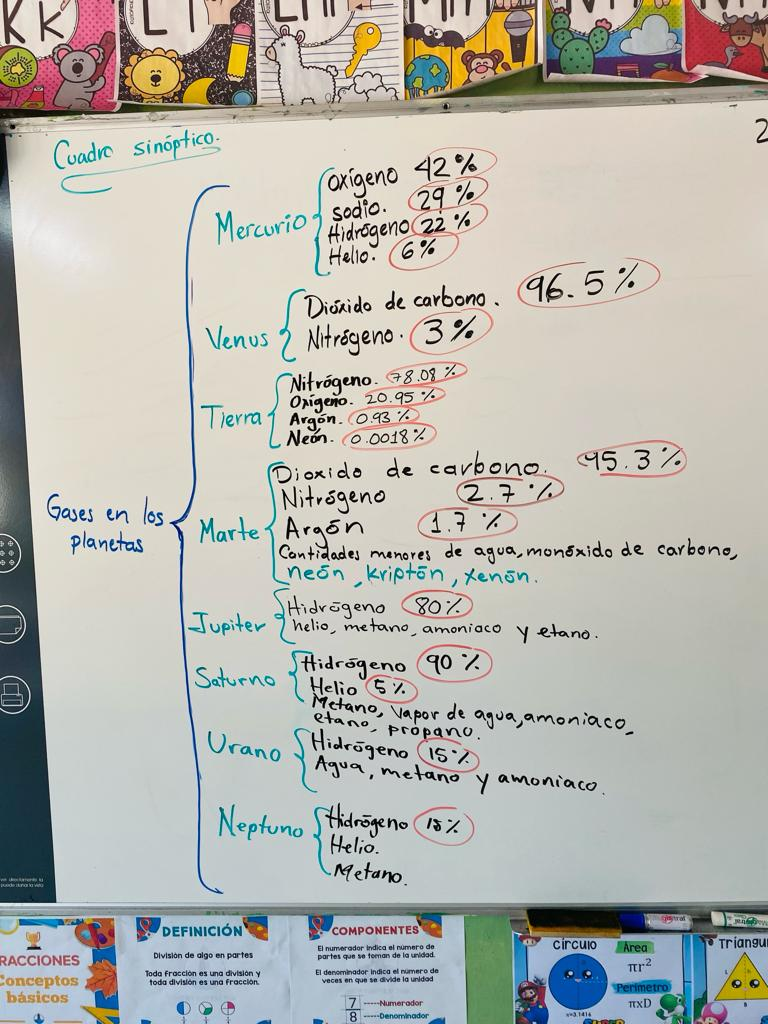 Kk
Ll
Cuadro sinóptico.
2
Gases en los
planetas
Mercurio
Oxígeno 42%
sodio. 29%
Hidrógeno 22%
Helio. 6%
Venus
Dióxido de carbono. 96.5%
Nitrógeno. 3%
Tierra
Nitrógeno. 78.08%
Oxígeno. 20.95%
Argón. 0.93%
Neón. 0.0018%
Marte
Dioxido de carbono. 95.3%
Nitrógeno 2.7%
Argón 1.7%
Cantidades menores de agua, monóxido de carbono,
neón, kriptón, xenón.
Jupiter
Hidrógeno 80%
helio, metano, amoniaco y etano.
Saturno
Hidrógeno 90%
Helio 5%
Metano, vapor de agua, amoniaco,
etano, propano.
Urano
Hidrógeno 15%
Agua, metano y amoniaco.
Neptuno
Hidrógeno 15%
Helio.
Metano.
RACCIONES
Conceptos
básicos
DEFINICIÓN
División de algo en partes
Toda fracción es una división y
toda división es una fracción.
COMPONENTES
El numerador indica el número de
partes que se toman de la unidad.
El denominador indica el número de
veces en que se divide la unidad
7 -----Numerador
8 -----Denominador
Círculo
Area
πr²
Perímetro
πxD
π=3.1416
Triangu